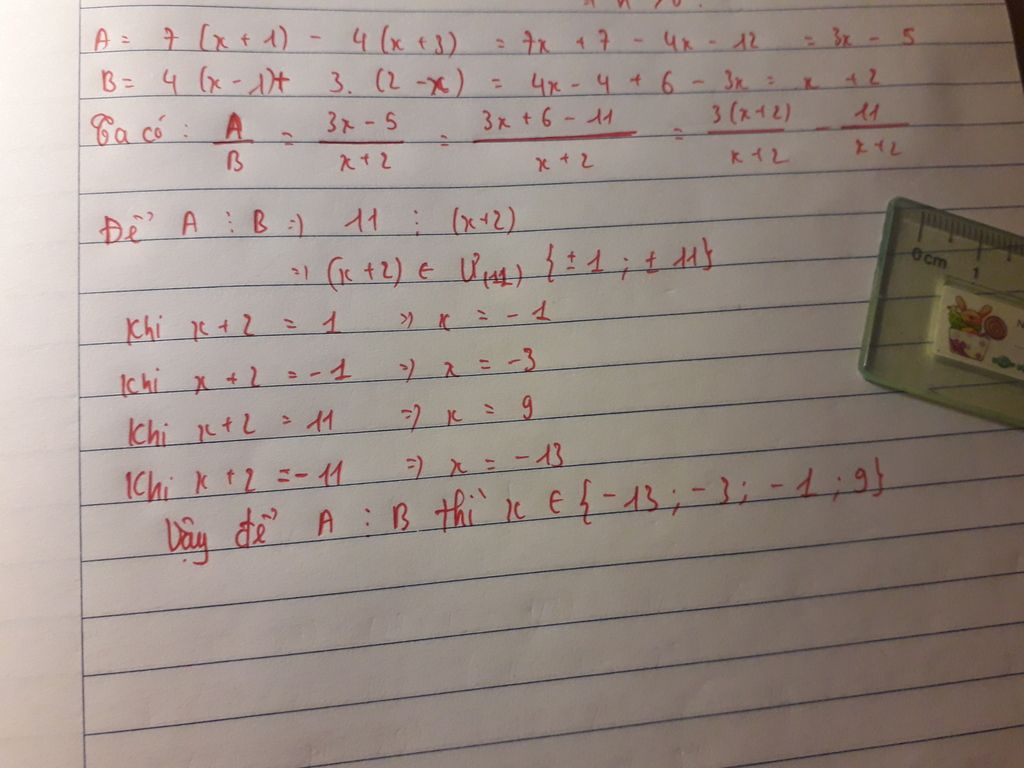 A = 7 (x + 1) - 4 (x + 3) = 7x + 7 - 4x - 12 = 3x - 5
B = 4 (x - 1) + 3. (2 - x) = 4x - 4 + 6 - 3x = x + 2
Ta có : A/B = (3x - 5)/(x + 2) = (3x + 6 - 11)/(x + 2) = 3(x+2)/(x+2) - 11/(x+2)
Để A ⋮ B => 11 ⋮ (x+2)
=> (x + 2) ∈ Ư(11) {± 1 ; ± 11}
Khi x + 2 = 1 => x = - 1
Khi x + 2 = - 1 => x = - 3
Khi x + 2 = 11 => x = 9
Khi x + 2 = - 11 => x = - 13
Vậy để A ⋮ B thì x ∈ {- 13 ; - 3 ; - 1 ; 9}
0cm 1